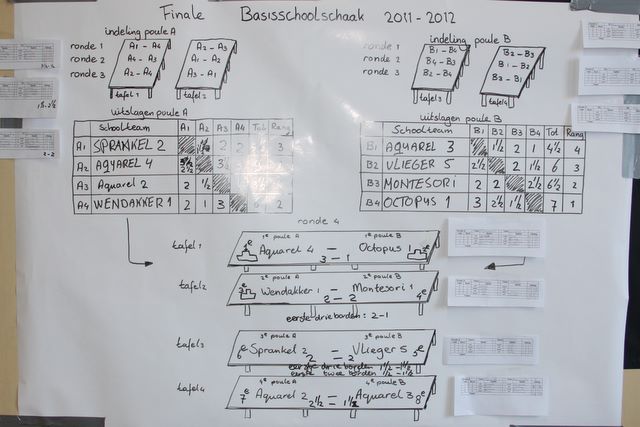 Finale Basisschoolschaak 2011-2012
indeling poule A
ronde 1 A1 - A4 A2 - A3
ronde 2 A4 - A3 A1 - A2
ronde 3 A2 - A4 A3 - A1
tafel 1 tafel 2
indeling poule B
ronde 1 B1 - B4 B2 - B3
ronde 2 B4 - B3 B1 - B2
ronde 3 B2 - B4 B3 - B1
tafel 3 tafel 4
uitslagen poule A
Schoolteam A1 A2 A3 A4 Tot Rang
A1 SPRANKEL 2 2 2 3
A2 AQUAREL 4
A3 Aquarel 2 2 1½ 4
A4 WENDAKKER 1 2 1 3 2
uitslagen poule B
Schoolteam B1 B2 B3 B4 Tot Rang
B1 AQUAREL 3 1½ 2 1 4½ 4
B2 VLIEGER 5 2½ 2 1½ 6 3
B3 MONTESORI 2 2 2½ 6½ 2
B4 OCTOPUS 1 3 2½ 1½ 7 1
ronde 4
tafel 1
1e poule A 1e poule B
Aquarel 4 - Octopus
3 - 1
tafel 2
2e poule A 2e poule B
3e Wendakker 1 - Montesori 1 4e
2 - 2
eerste drie borden: 2-1
tafel 3
3e poule A 3e poule B
6e Sprankel 2 - Vlieger 5 5e
2 = 2
eerste drie borden 1½ - 1½
eerste twee borden ½ - 1½
tafel 4
4e poule A 4e poule B
7e Aquarel 2 - Aquarel 3 8e
2½ - 1½